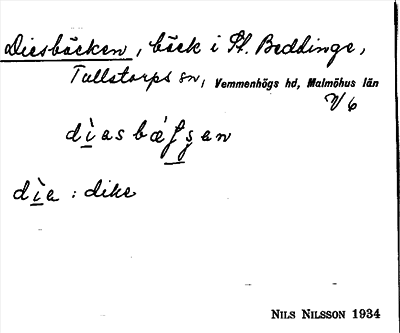 Diesbäcken, bäck i St. Beddinge,
Tullstorps sn, Vemmenhögs hd, Malmöhus län
V/6
dìa : dike
NILS NILSSON 1934